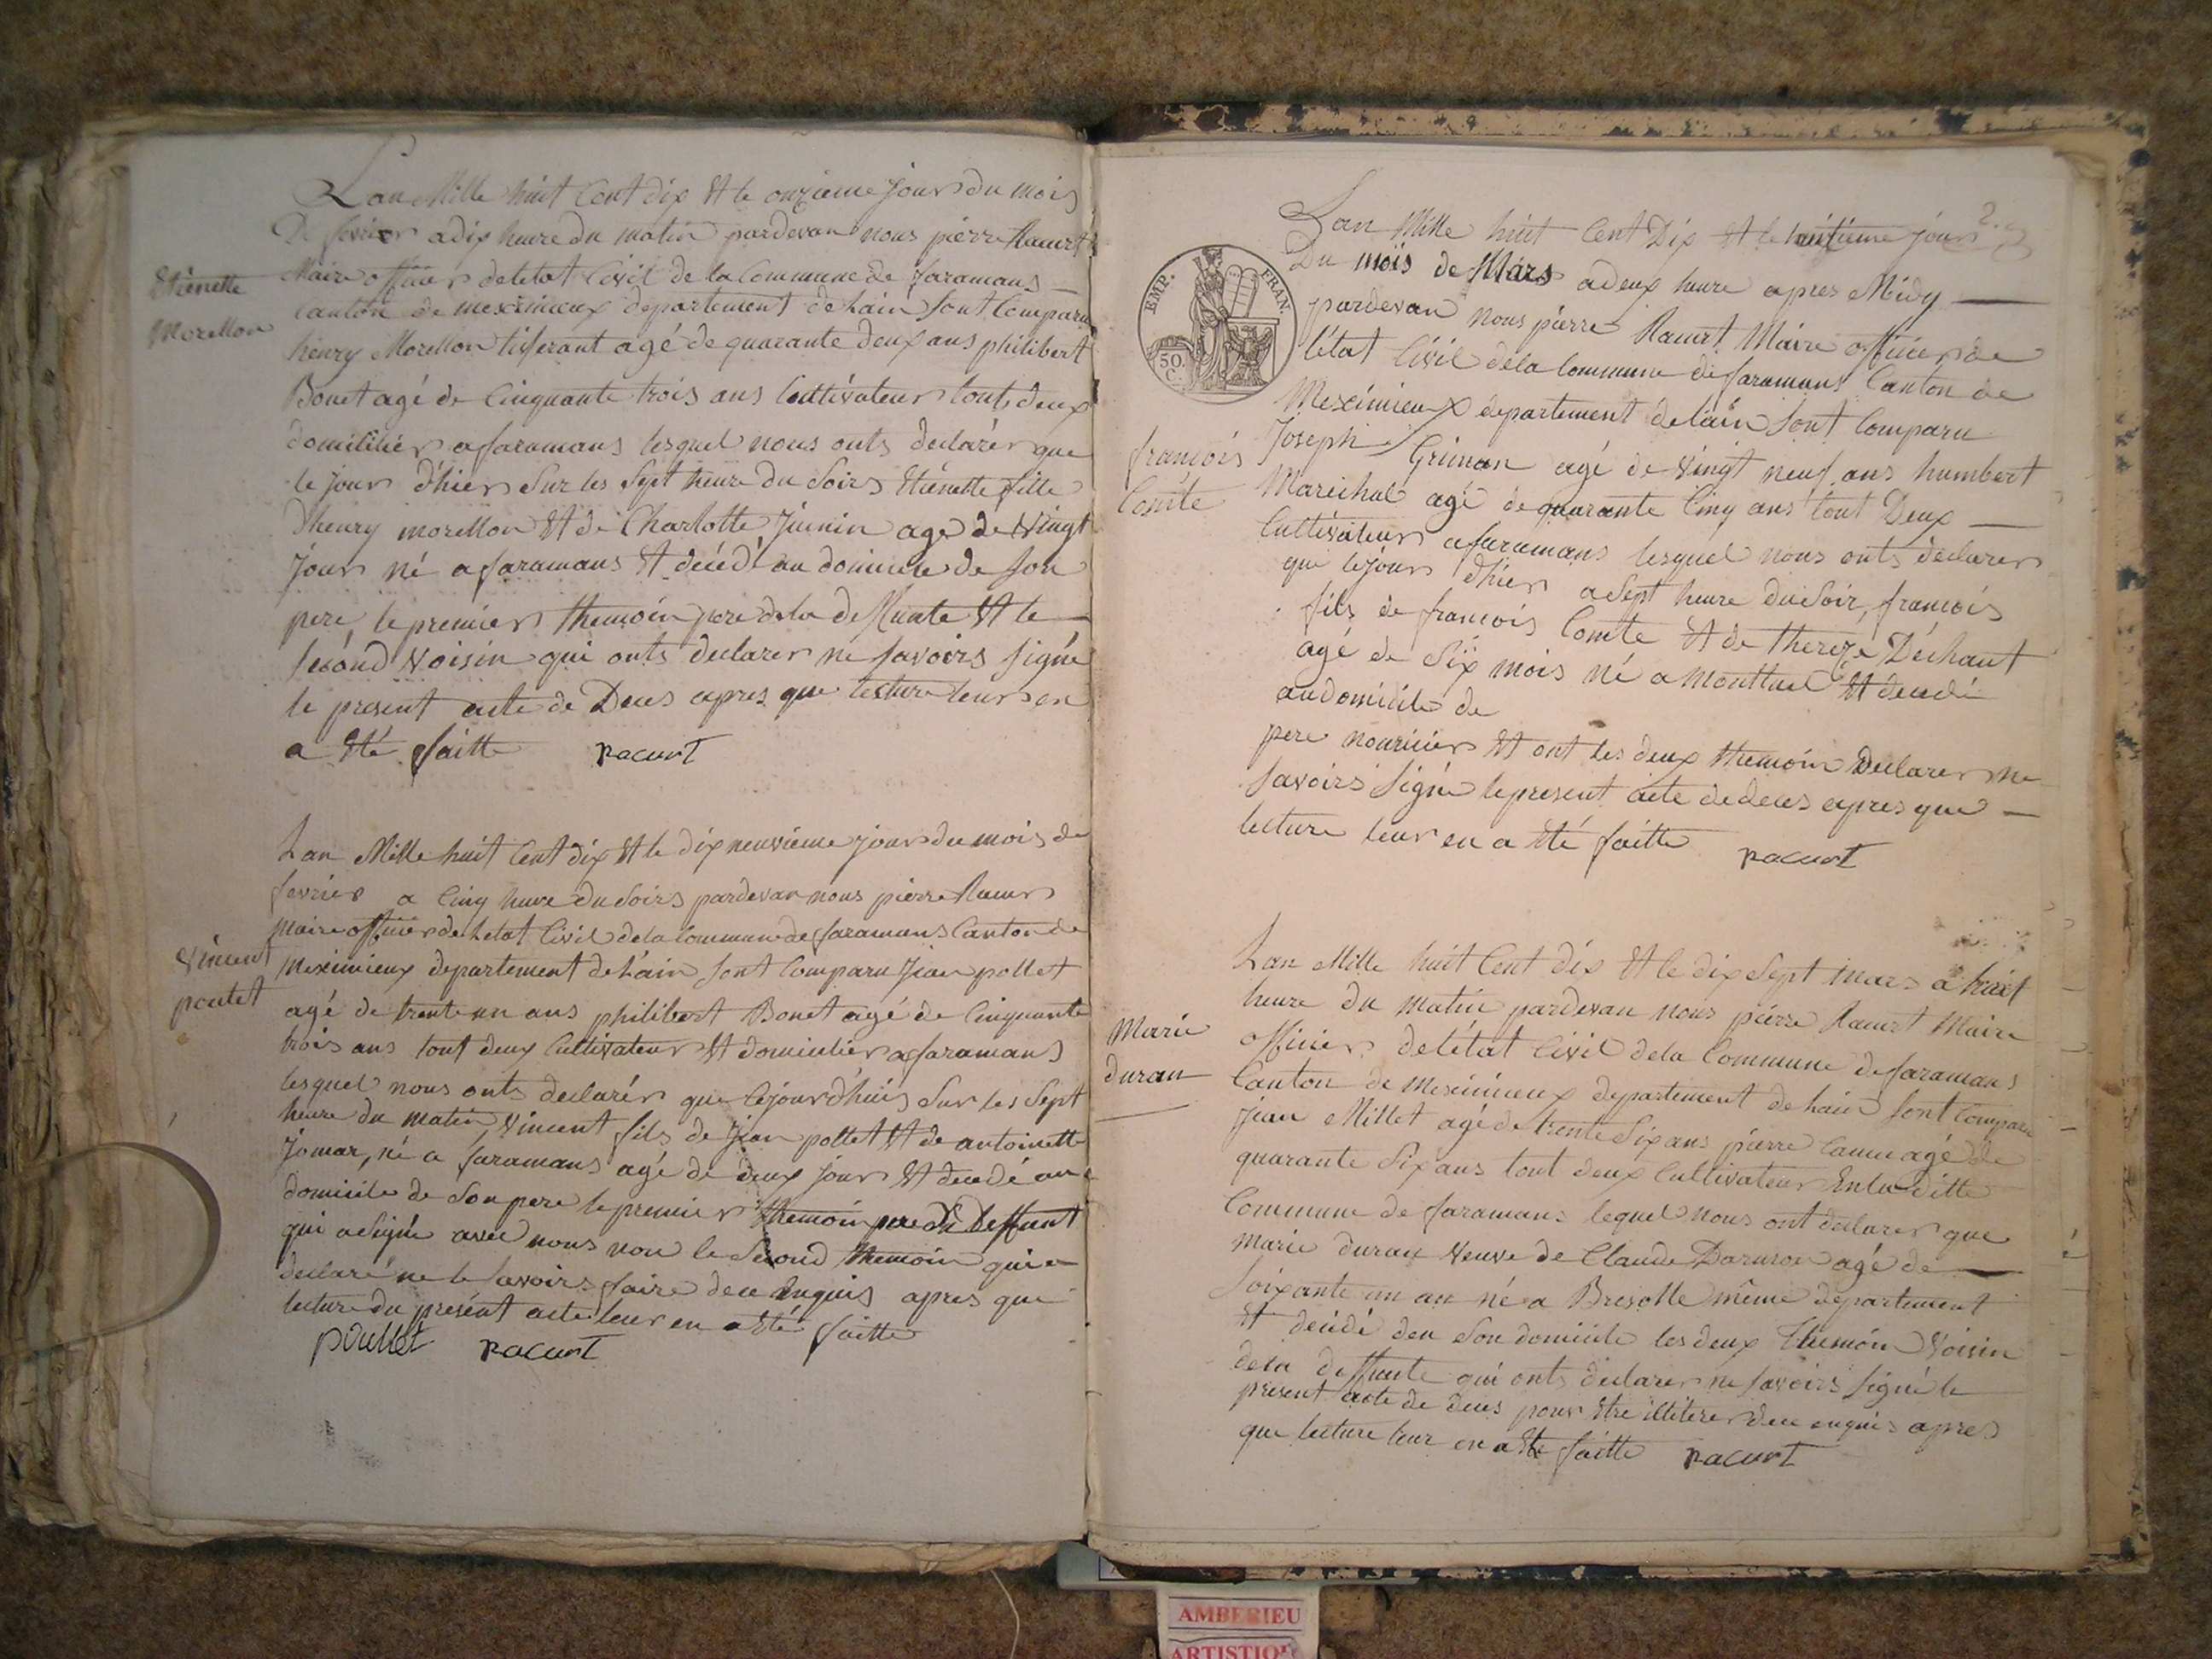 Lan Mille huit Cent dix Et le onzieme jour du mois
De fevrier a dix heure du matin pardevan nous pierre Racurt
Maire officier de letat Civil de la Commune de faramans
Canton de meximieux departement de Lain sont Comparu
henry Morellon tiserant agé de quarante deux ans philibert
Bonet agé de Cinquante trois ans Cultivateur tout deux
domicilier a faramans lesquel nous onts declarér que
le jour d'hier Sur les Sept heure du Soirs Etiénette fille
Dhenry morellon Et de Charlotte Juenin age de vingt
Jour né a faramans Et décédé au domicile de son
pere, le premier themoin pere dela deffunte Et le
second voisin qui onts declarer ne savoirs signé
le present acte de Deces apres que lecture leur en
a Eté faitte racurt
Etiénette
Morellon
Lan Mille huit Cent dix Et le dix neuvieme jour du mois de
fevrier a Cinq heure du Soirs pardevan nous pierre Racurt
Maire officier de Letat Civil dela Commune de faramans Canton de
Meximieux departement de Lain sont Comparu Jean pollet
agé de trente un ans philibert Bonet agé de Cinquante
trois ans tout deux Cultivateur Et domicilier a faramans
lesquel nous onts declarér que Cejourd'huis Sur les Sept
heure du matin, Vincent fils de Jean pollet Et de antoinette
Jomar, né a faramans agé de deux jour Et decedé au
domicile de Son pere le premier themoin pere du Deffunt
qui a Signé avec nous non le Second themoin qui a
declaré ne le Savoirs faire de ce Enquis apres que
lecture du présent acte leur en a Eté faitte
poullet racurt
Vincent
poulet
2.
Lan Mille huit Cent Dix Et le huitieme jour
Du mois de Mars a deux heure apres Midy
pardevan nous pierre Racurt Maire officier de
l'état Civil dela Commune de faramans Canton de
Meximieux departement de lain sont Comparu
Joseph Griman agé de vingt neuf ans humbert
Marechal agé de quarante Cinq ans tout Deux
Cultivateur a faramans lesquel nous onts déclarer
que le jour d'hier a Sept heure du Soir, francois
fils de francois Comte Et de thereze Déchaut
agé de Six mois né a montluel Et decedé
au domicile de
pere nouricier Et ont les deux themoin Declarer ne
savoirs Signé le present acte de deces apres que
lecture leur en a Eté faitte racurt
EMP. FRAN.
50.
C.
francois
Comte
Lan Mille huit Cent dix Et le dix Sept mars a huit
heure du matin pardevan nous pierre Racurt Maire
officier de létat Civil dela Commune de faramans
Canton de Meximieux departement de Lain sont Comparu
Jean Millet agé de trente Six ans pierre agé de
quarante Six ans tout deux Cultivateur En la ditte
Commune de faramans lequel nous ont declarer que
marie duran veuve de Claude agé de
Soixante un an né a Bresolle même departement
Et décédé den Son domicile les deux themoin voisin
dela deffunte qui onts declarer ne savoirs signé le
present acte de deces pour Etre illiterer de ce enquis apres
que lecture leur en a Eté faitte racurt
Marie
duran
AMBERIEU
ARTISTIQUE